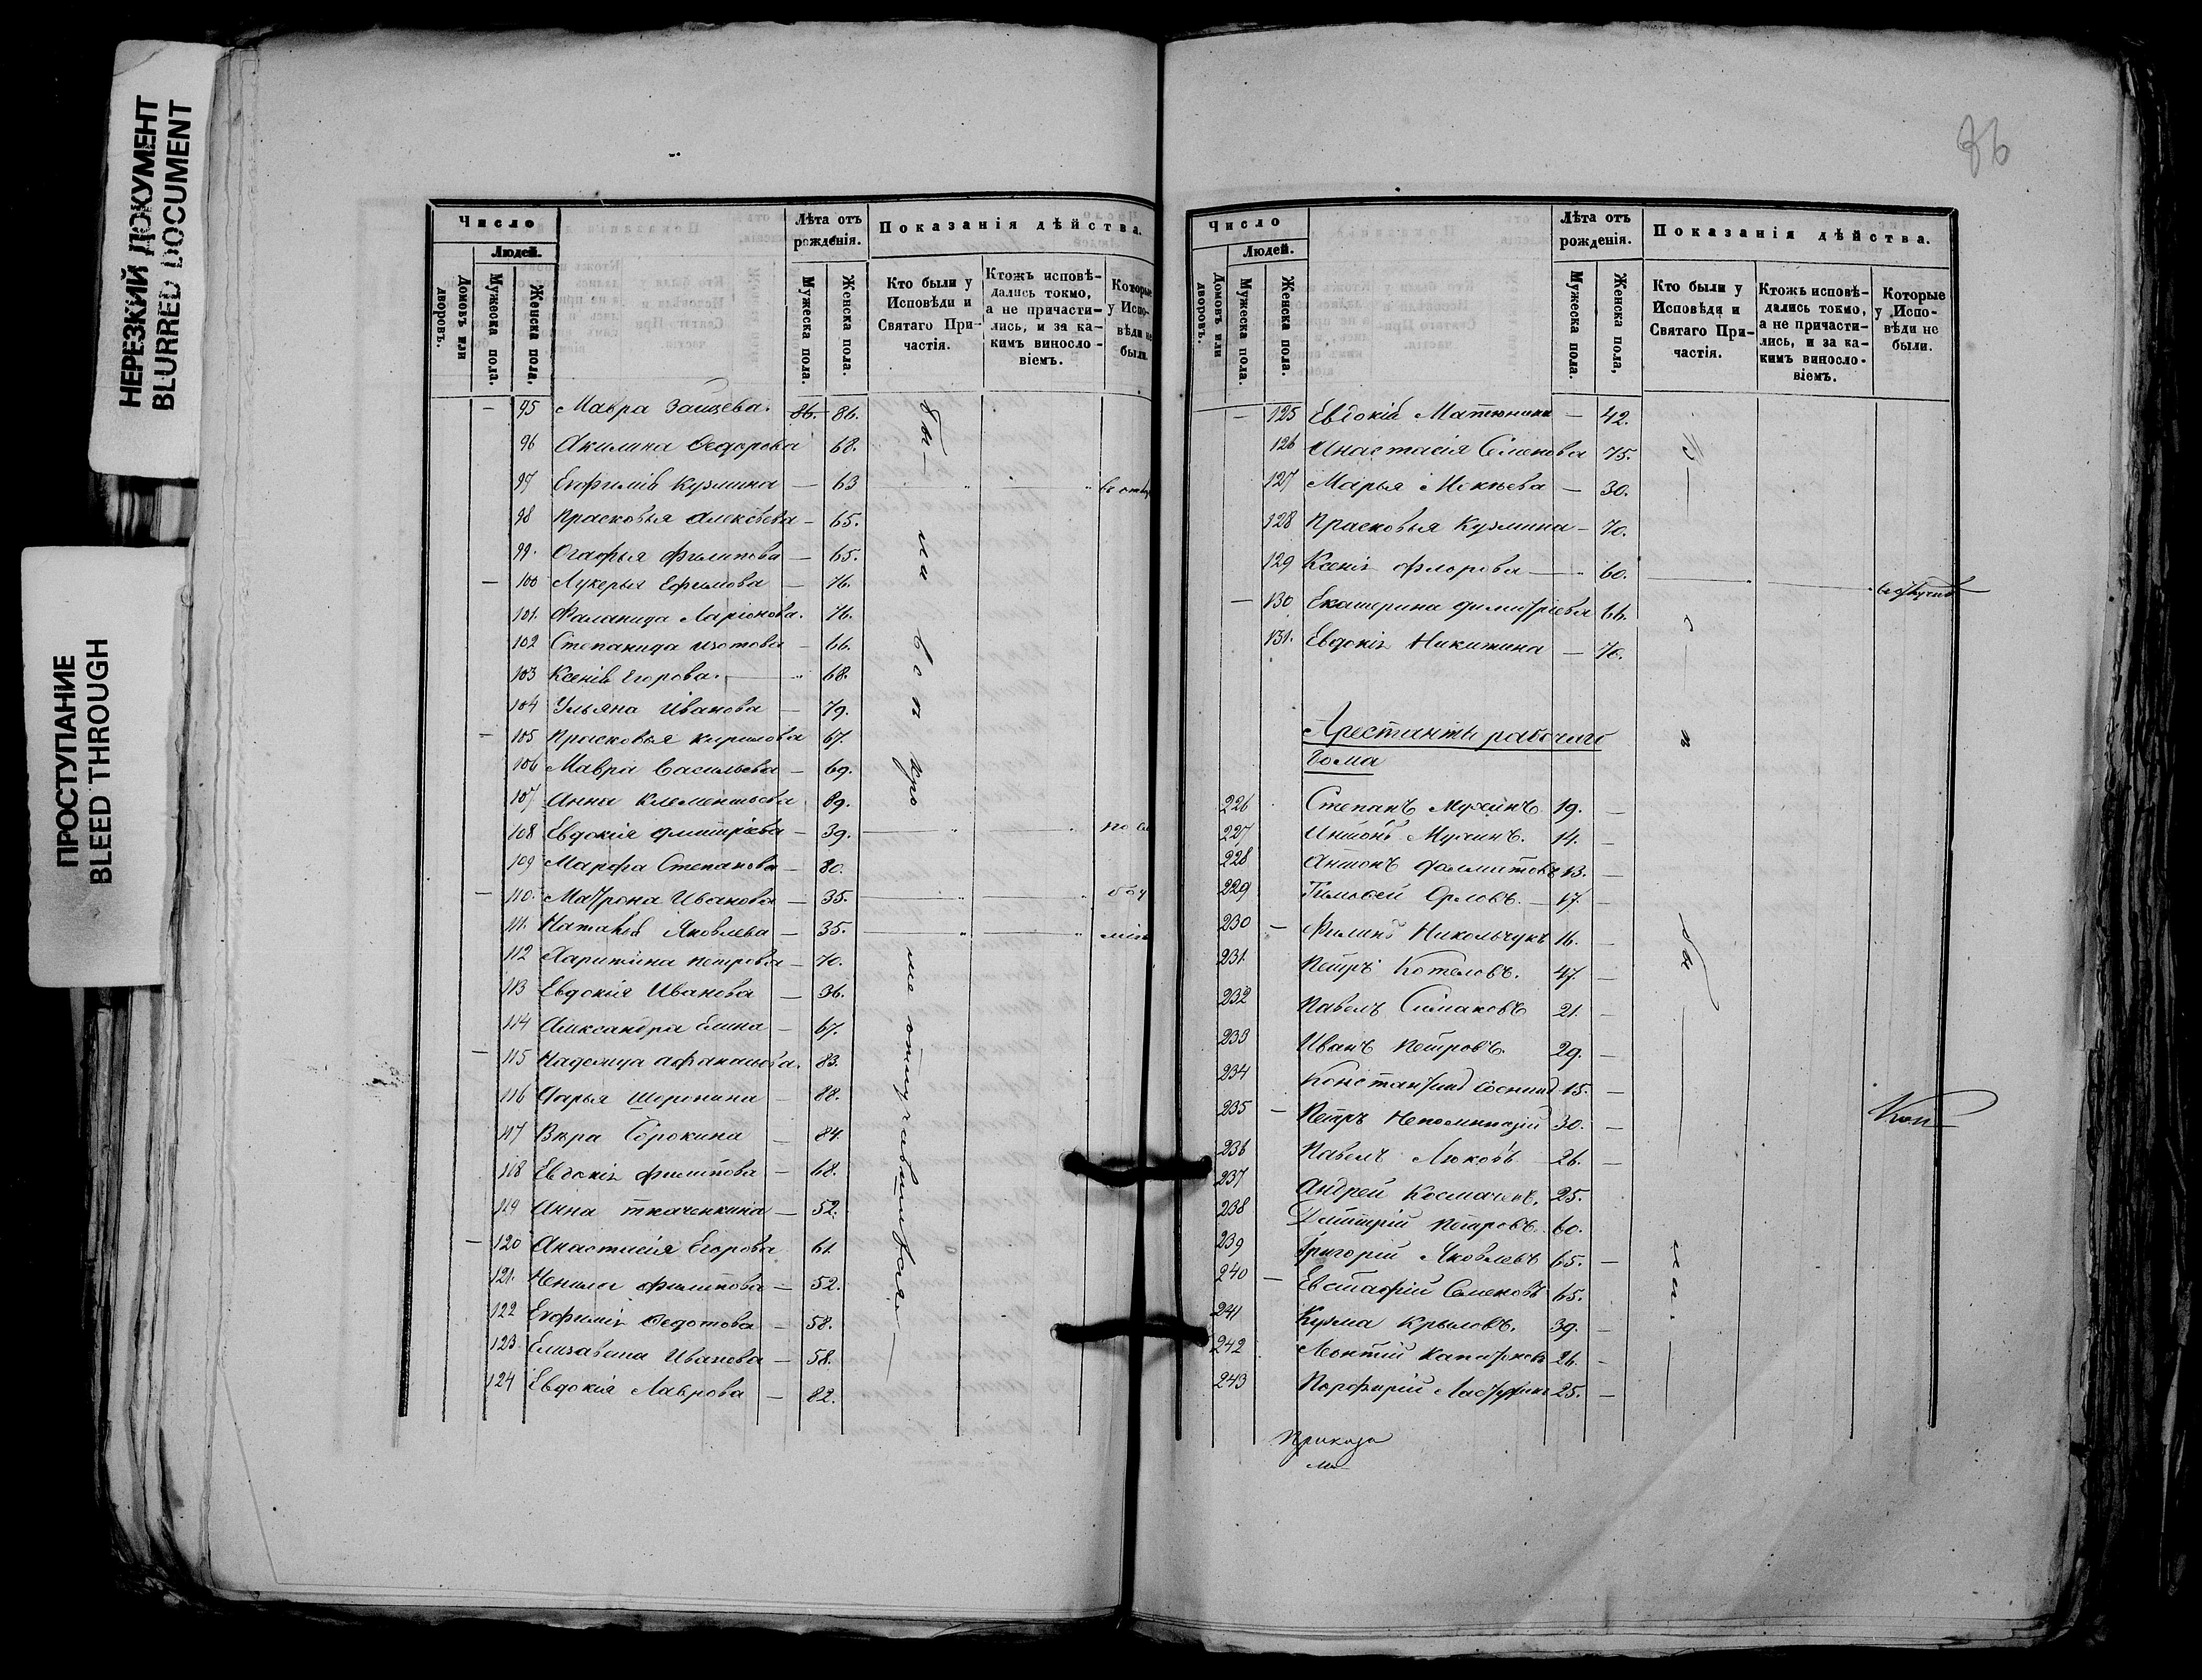 НЕРЕЗКИЙ ДОКУМЕНТ
BLURRED DOCUMENT
ПРОСТУПАНИЕ
BLEED THROUGH
Число
Людей.
Домовъ или дворовъ.
Мужеска пола.
Женска пола.
Лѣта отъ рожденія.
Мужеска пола.
Женска пола.
Показанія дѣйства.
Кто были у Исповѣди и Святаго При-частія.
Ктожъ исповѣ-дались токмо, а не причасти-лись, и за ка-кимъ виносло-віемъ.
Которые у Испо-вѣди не были.
— 95 Мавра Заицева. 86. 86.
96 Акилина Федорова 68.
97 Евфимія Кузмина — 63
98 Прасковья Алексѣева — 65.
99. Огафья Филипова — 65.
— 100 Лукерья Ефимова — 76.
101. Маланида Ларіонова. 76.
102 Степанида Изотова — 66.
103 Ксенія Егорова. — 68.
104 Ульяна Иванова — 79.
— 105 Прасковья Кирилова 67.
106 Мавра Васильева — 69.
107 Анна Клементьева 89.
108 Евдокія Дмитріева — 39.
109 Марфа Степанова — 80.
— 110. Матрона Иванова — 35.
111. Наталья Яковлева — 35.
112 Харитина Петрова — 70.
113 Евдокія Иванова — 36.
114 Александра Елина — 67.
— 115 Надежда Афанасьева. 83.
116 Дарья Шоронина — 88.
117 Вѣра Сорокина — 84.
118 Евдокія Филипова — 68.
119 Анна Ткаченкина — 52.
— 120 Анастасія Егорова 61.
121. Ненила Филипова — 52.
122 Евфимія Федотова — 58.
123. Елизавета Иванова — 58.
124 Евдокія Лаврова — 82.
86
Число
Людей.
Домовъ или дворовъ.
Мужеска пола.
Женска пола.
Лѣта отъ рожденія.
Мужеска пола.
Женска пола,
Показанія дѣйства.
Кто были у Исповѣди и Святаго При-частія.
Ктожъ исповѣ-дались токмо, а не причасти-лись, и за ка-кимъ виносло-віемъ.
Которые у Испо-вѣди не были.
— 125 Евдокія Матюнина — 42.
126 Анастасія Семенова 75.
127 Марья Мокѣева — 30.
128 Прасковья Кузмина — 70.
129 Ксенія Флорова — 60.
— 130 Екатерина Димитріева 66.
131. Евдокія Никитина — 70.
Арестанты рабочаго
дома
226 Степанъ Мухинъ. 19. —
227 Антонъ Мухинъ. 14. —
228 Антонъ 13. —
229 Тимофей Орловъ. 17. —
230 — Филипъ Никольчукъ 16. —
231. Петръ Котеловъ. 47. —
232 Павелъ Симаковъ 21. —
233 Иванъ Петровъ. 29. —
234 Константинъ 15. —
235 — Петръ Непомнящій 30. —
236 Павелъ Люковъ 26. —
237 Андрей Космачевъ. 25.
238 Дмитрій Петровъ. 60.
239 Григорій Яковлевъ 65. —
240 — Евстафій Семеновъ 65.
241 Кузма Крыловъ. 39. —
242 Леонтій 26. —
243 Порфирій 25. —
Приказа